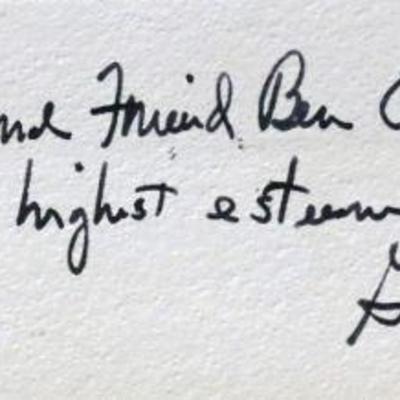 and Friend Ben
highest esteem